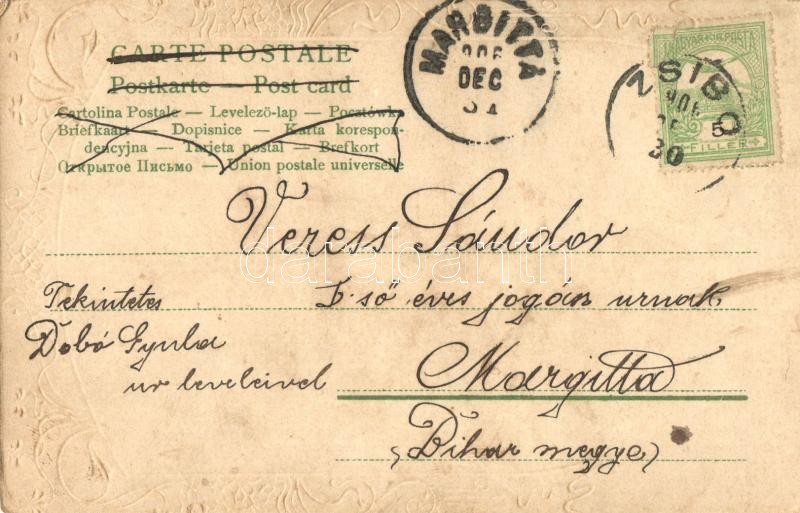 CARTE POSTALE
Postkarte — Post card
Cartolina Postale — Levelezö-lap — Pocztówka
Briefkaart — Dopisnice — Karta korespon-
dencyjna — Tarjeta postal — Brefkort
Открытое Письмо — Union postale universelle
MARGITTA
906
DEC
31
MAGYAR KIR. POSTA
5
FILLER
ZSIBO
906
30
Veress Sándor
I. ső éves jogász urnak
Margitta
(Bihar megye)
Tekintetes
Dobó Gyula
ur leveleivel
darabanth